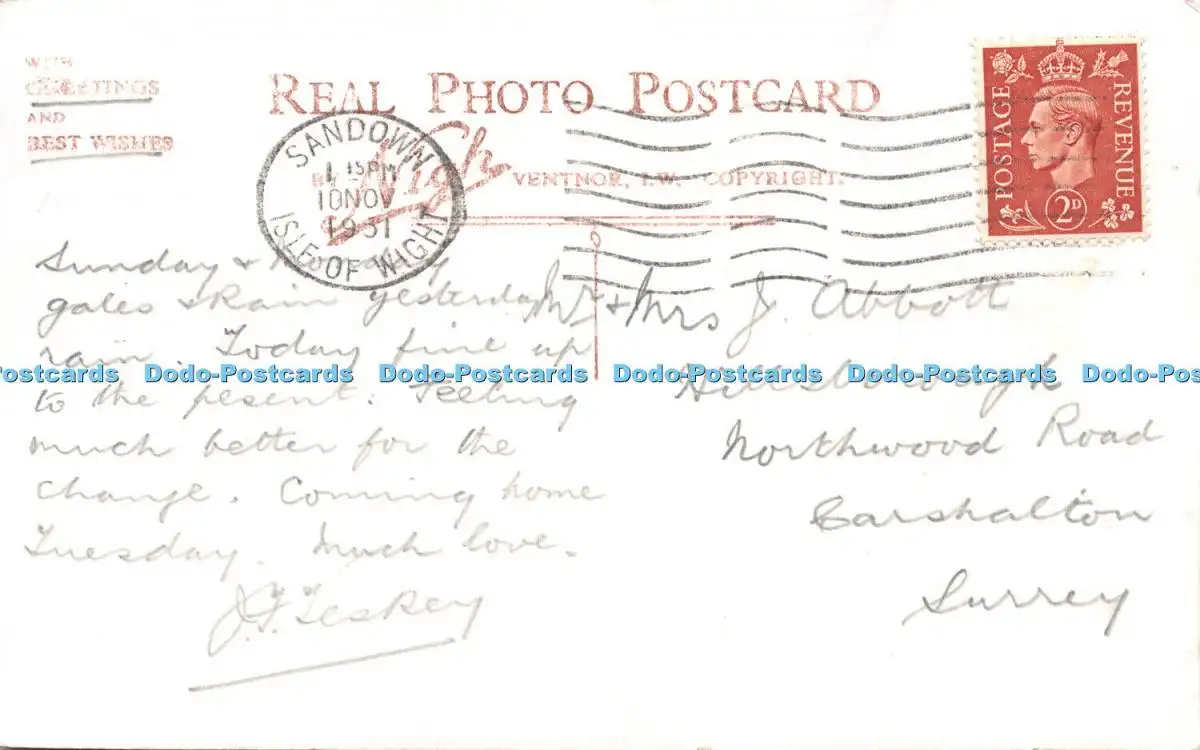 WITH
GREETINGS
AND
BEST WISHES
REAL PHOTO POSTCARD
BY Nigh VENTNOR, I.W. COPYRIGHT.
SANDOWN
1 15PM
10 NOV
1951
ISLE OF WIGHT
POSTAGE REVENUE
2D
Sunday +
gales & Rain yesterday
rain. Today fine up
to the present. Feeling
much better for the
change. Coming home
Tuesday. Much love.
J.F. Leskey
Mr + Mrs J. Abbott
Hillsborough
Northwood Road
Carshalton
Surrey
Dodo-Postcards Dodo-Postcards Dodo-Postcards Dodo-Postcards Dodo-Postcards Dodo-Pos